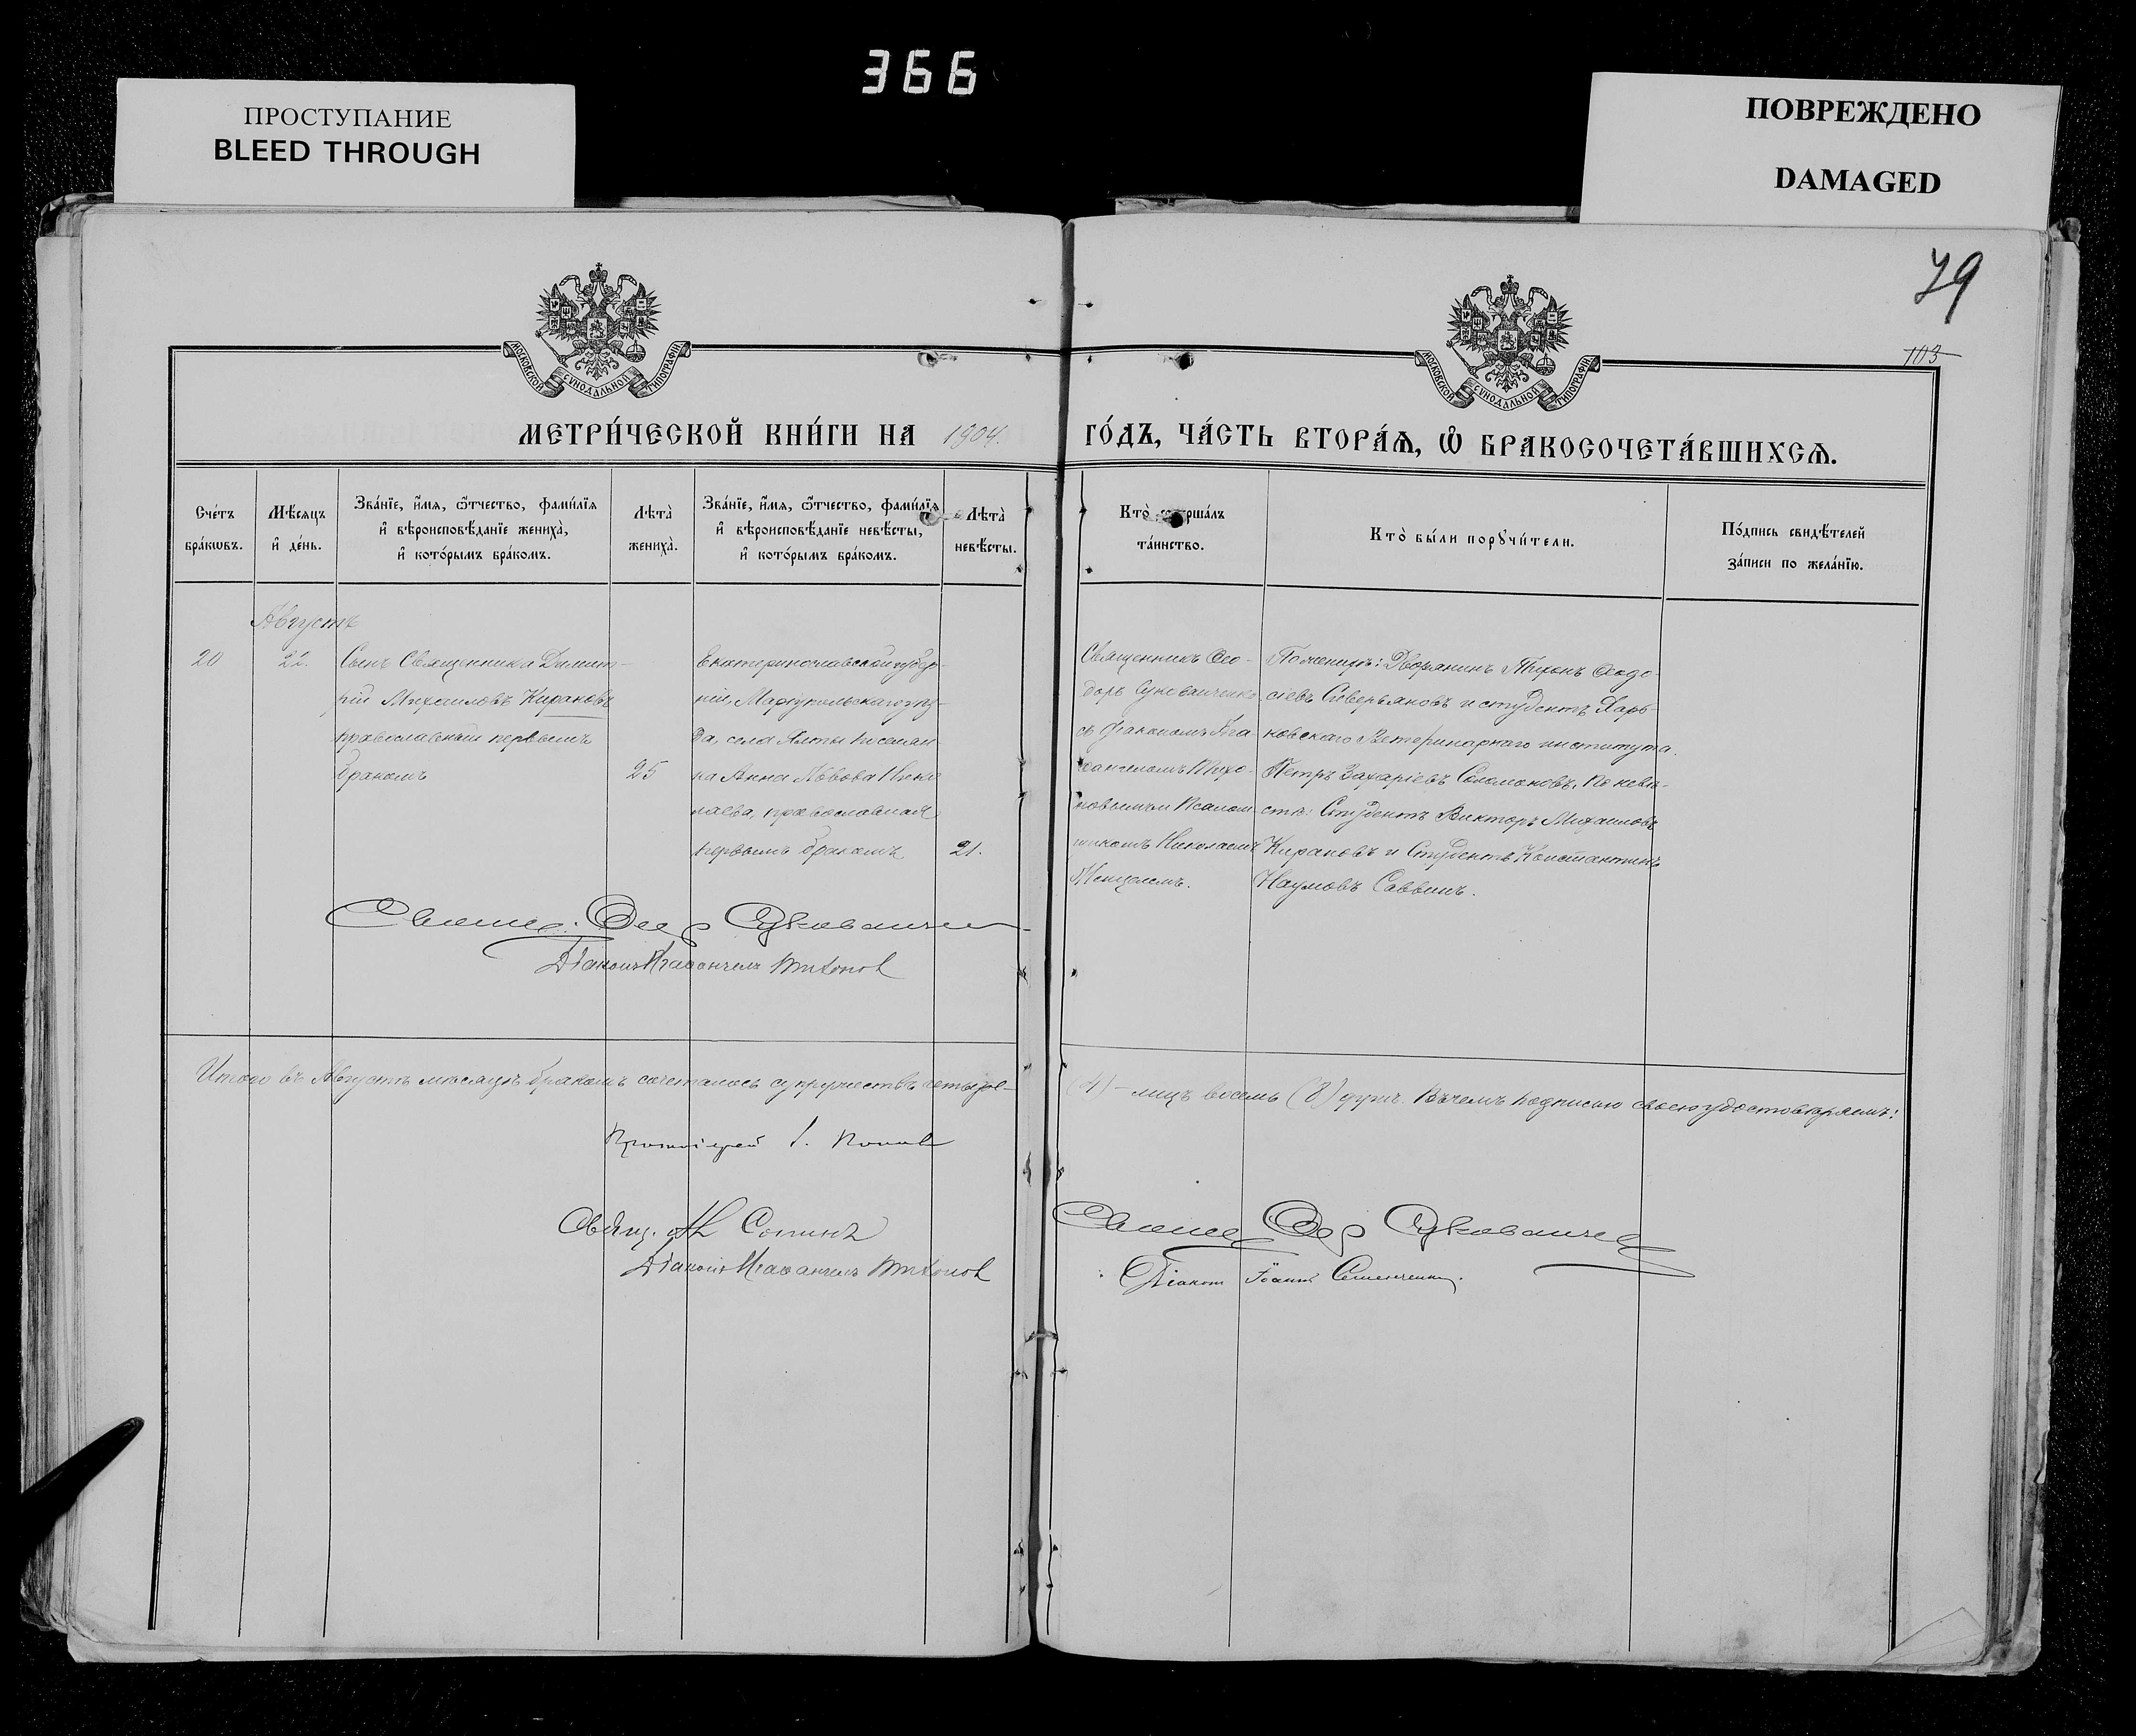 366
ПРОСТУПАНИЕ
BLEED THROUGH
ПОВРЕЖДЕНО
DAMAGED
79
103
МОСКОВСКОЙ СѴНОДАЛЬНОЙ ТИПОГРАФІИ
МОСКОВСКОЙ СѴНОДАЛЬНОЙ ТИПОГРАФІИ
МЕТРИ́ЧЕСКОЙ КНИ́ГИ НА 1904. ГО́ДЪ, ЧА́СТЬ ВТОРА́Ѧ, Ѡ҆ БРАКОСОЧЕТА́ВШИХСѦ.
Сче́тъ
бра́кѡвъ.
Мѣ́сѧцъ
и҆ де́нь.
Зва́нїе, и҆́мѧ, ѻ҆́тчество, фами́лїѧ
и҆ вѣроисповѣ́данїе жениха̀,
и҆ кото́рымъ бра́комъ.
Лѣта̀
жениха̀.
Зва́нїе, и҆́мѧ, ѻ҆́тчество, фами́лїѧ
и҆ вѣроисповѣ́данїе невѣ́сты,
и҆ кото́рымъ бра́комъ.
Лѣта̀
невѣ́сты.
Кто̀ соверша́лъ
та́инство.
Кто̀ бы́ли порꙋчи́тели.
По́дпись свидѣ́телей
за́писи по жела́нїю.
Августъ
20
22.
Сынъ Священника Димит-
рій Михаиловъ Кираковъ
православный первымъ
бракомъ
25
Екатеринославской губер-
ніи, Маріупольскаго уѣз-
да, села Ялты поселян-
ка Анна Львова Нико
лаева, православная
первымъ бракомъ
21.
Священникъ Ѳео-
доръ
съ діакономъ Ага-
ѳангеломъ Тихо-
новымъ и Псалом-
щикомъ Николаемъ
По женихѣ: Дворянинъ Тихонъ Ѳеодо-
сіевъ Сиверьяновъ и студентъ Харь-
ковскаго Ветеринарнаго института
Петръ Захаріевъ Соломоновъ. По невѣ-
стѣ: Студентъ Викторъ Михаиловъ
Кираковъ и Студентъ Константинъ
Наумовъ Саввинъ.
Діаконъ Агаѳангелъ Тихонов
Итого въ Августѣ мѣсяцѣ бракомъ сочеталось супружествъ четыре- (4) - лицъ восемь (8) душъ. Въ чемъ подписью своею удостовѣряемъ:
Протоіерей І. Попов
Свящ. Сопинъ
Діаконъ Агаѳангелъ Тихонов
Діаконъ Іоаннъ Семенченко.